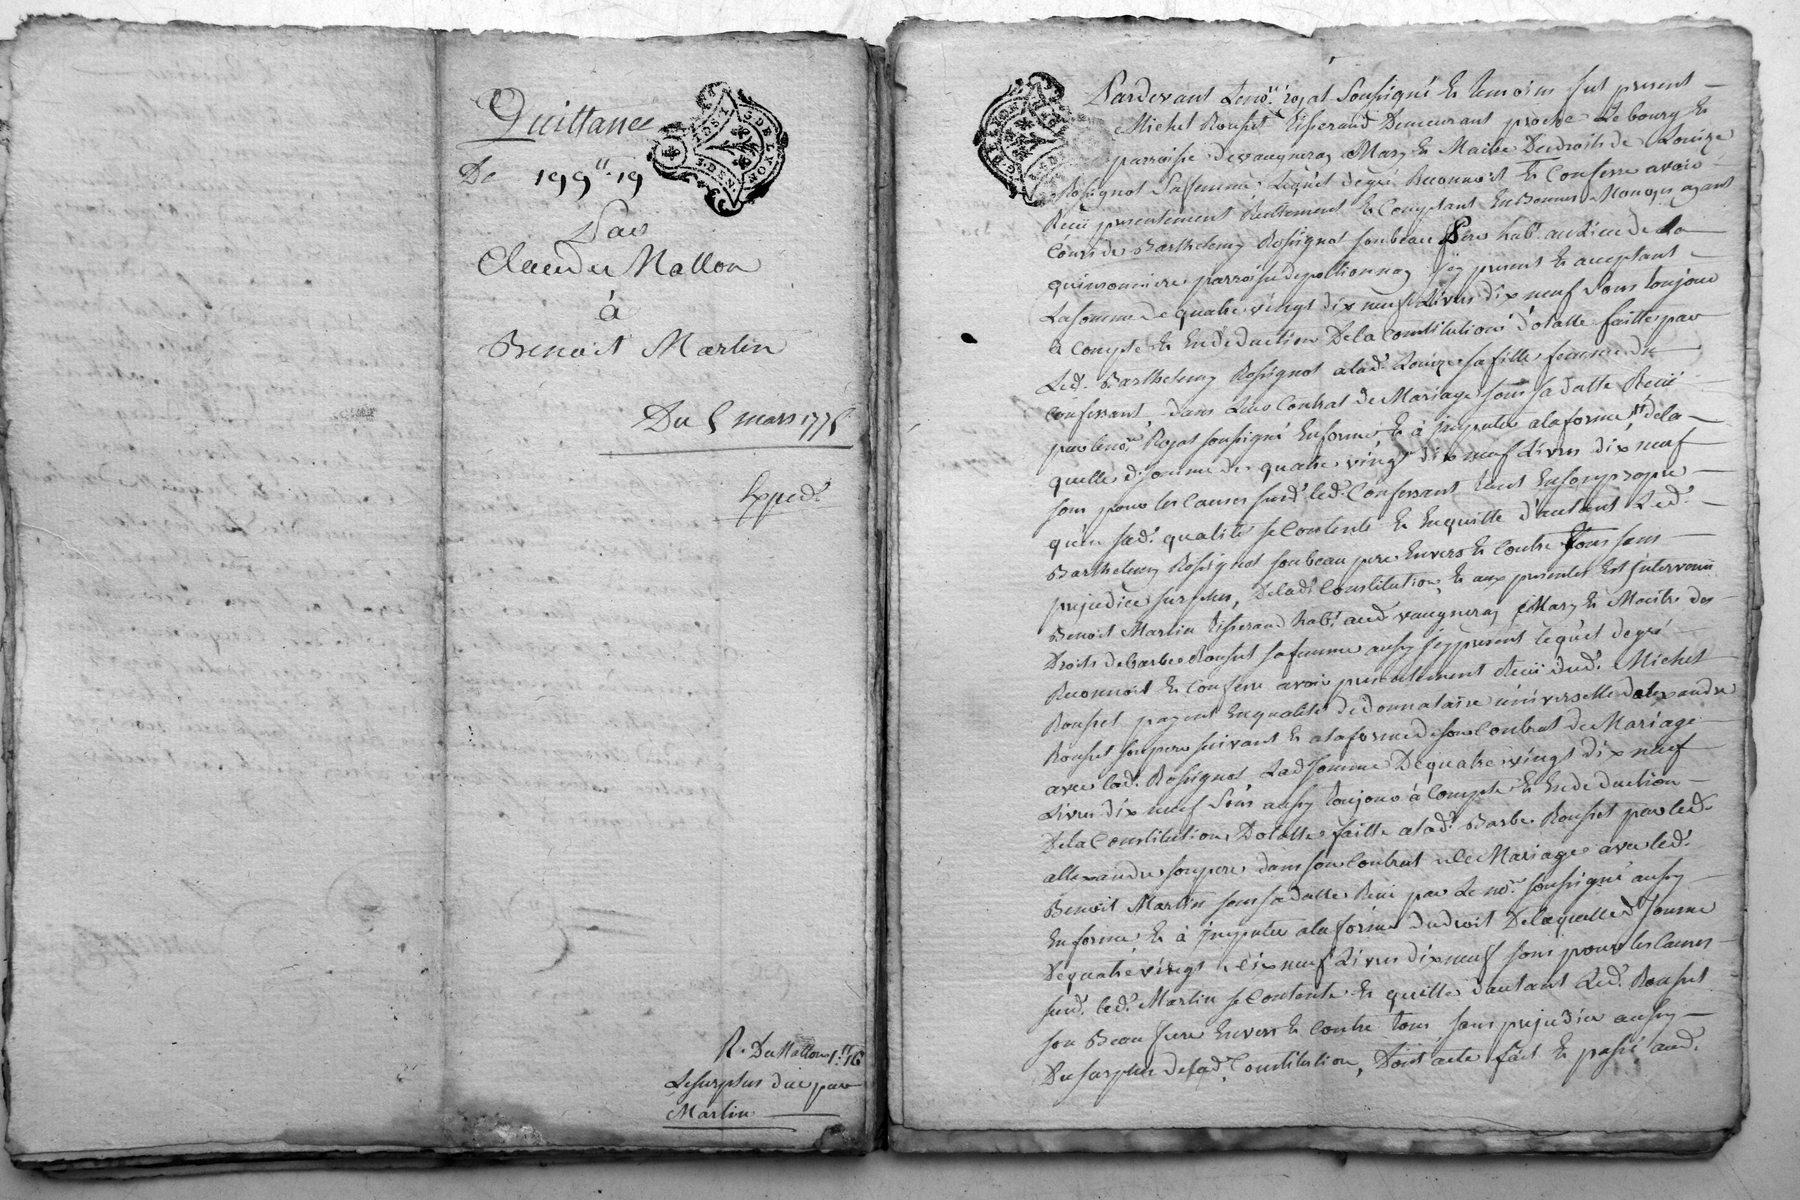 Quittance
De 199ᵗᵗ·19
Par
Claude Mallon
à
Benoit Martin
Du 5 mars 1775
Exped.
R. Du Mallon 1ᵗᵗ 16
Le surplus due par
Martin
GEN. DE LYON
Pardevant Le noʳᵉ royal soussigné Et temoins fut present
Michel Rousset tisserand Demeurant proche Le bourg Et
parroisse de vaugneray Mary Et Maitre Des droits de Louize
Rossignol sa femme, Lequel de gré Reconnoit Et Confesse avoir
Recü presentement Réellement Et Comptant En Bonnes Monoyes ayant
Cours de Barthelemy Rossignol son beau Pere habᵗ. au Lieu de La
parroise de pollionnay icy present Et acceptant
La somme de quatre vingt dix neuf Livres dix neuf Sous toujour
à Compte Et En déduction De la Constitution dotalle faitte par
Led. Barthelemy Rossignol a lad. Louize sa fille femme du
Confessant dans Leur Contrat de Mariage sous sa datte Recü
par le noʳᵉ Royal soussigné En forme, Et à imputer a la forme du dt de la
quelle d. somme de quatre vingt dix neuf Livres dix neuf
sous pour les Causes susd. led. Confessant tant En son propre
qu'en sad. qualité se Contente Et En quitte d'autant Led.
Barthelemy Rossignol son beau pere Envers Et Contre Tous sans
prejudice surplus, De lad. Constitution, Et aux presentes Est intervenü
Benoit Martin tisserand habᵗ. aud. vaugneray Mary Et Maitre des
Droits de barbe Rousset sa femme aussy icy present lequel de gré
Reconnoit Et Confesse avoir presentement Recü dud. Michel
Rousset payant En qualité de donnataire üniverselle d'alexandre
Rousset son pere suivant Et a la forme de son Contrat de Mariage
avec lad. Rossignol Lad. somme De quatre vingt dix neuf
Livres dix neuf Sous aussy toujour à Compte Et En déduction
De la Constitution Dotalle faitte a lad. Barbe Rousset par led.
allexandre son pere dans son Contrat de Mariage avec led.
Benoit Martin sous sa datte Recü par Le noʳᵉ soussigné aussy
En forme Et à imputer a la forme du droit De laquelle d. somme
De quatre vingt dix neuf Livres dix neuf sous pour les Causes
susd. led. Martin se Contente Et quitte d'autant Led. Rousset
son Beau frere Envers Et Contre tous sans prejudice aussy
Du surplus de lad. Constitution, Dont acte fait Et passé aud.